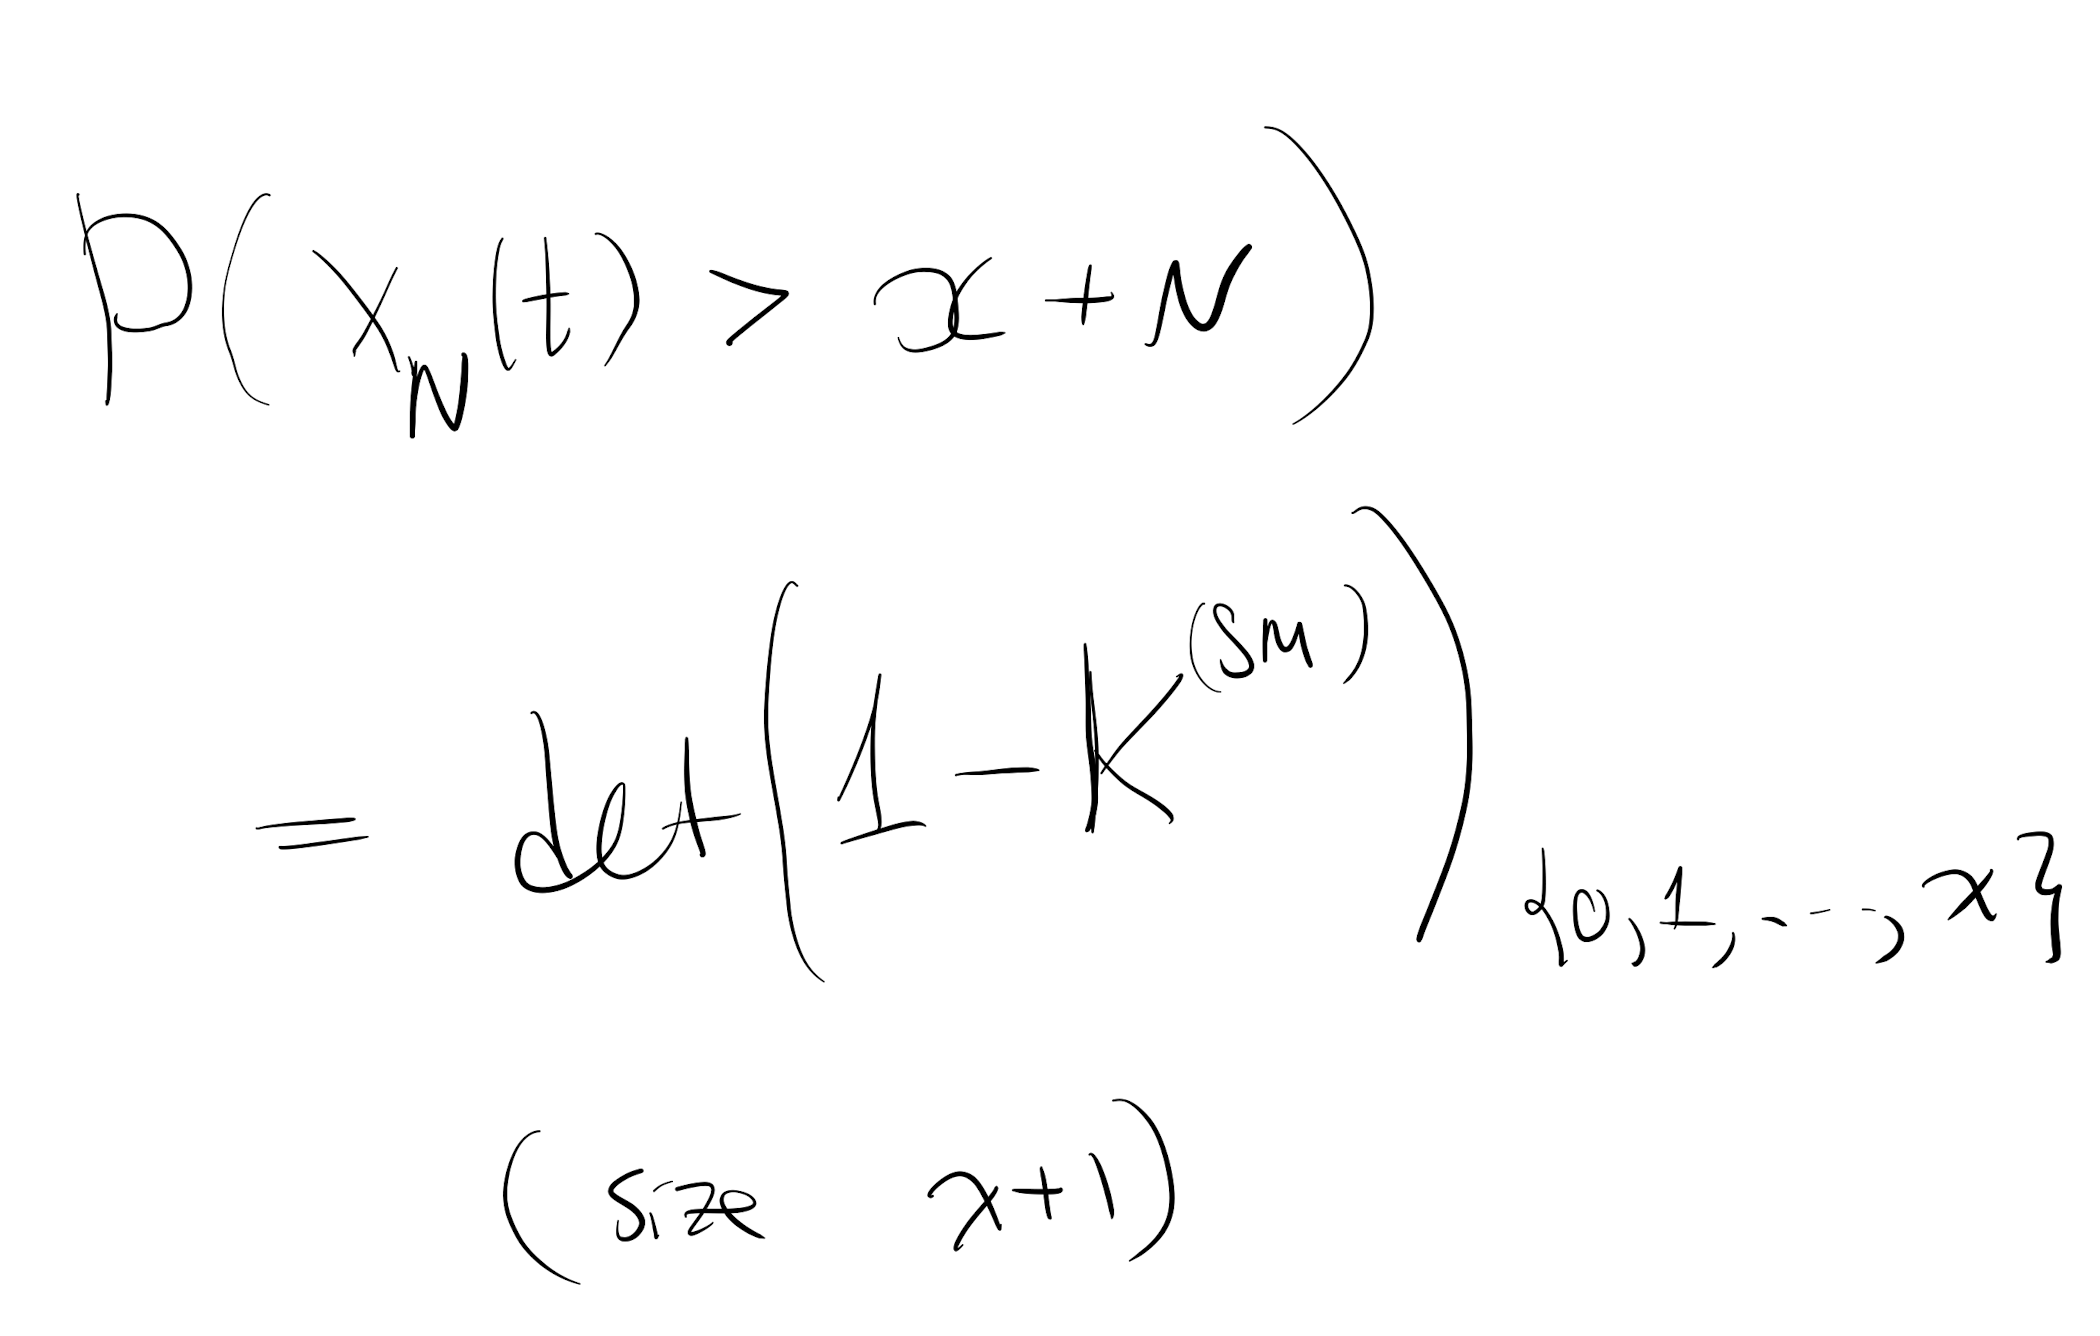 P( x_N(t) > x + N )
= det( 1 - K^(SM) )_{0, 1, ..., x}
( size x+1 )